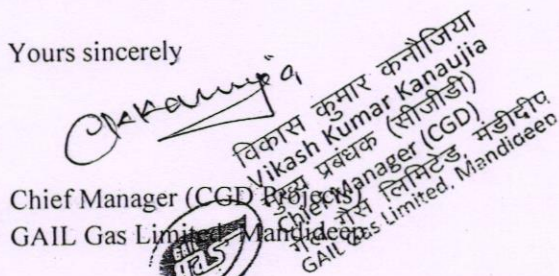 Yours sincerely
विकास कुमार कनौजिया
Vikash Kumar Kanaujia
मुख्य प्रबंधक (सीजीडी)
Chief Manager (CGD)
गेल गैस लिमिटेड, मंडीदीप
GAIL Gas Limited, Mandideep
Chief Manager (CGD Projects)
GAIL Gas Limited, Mandideep